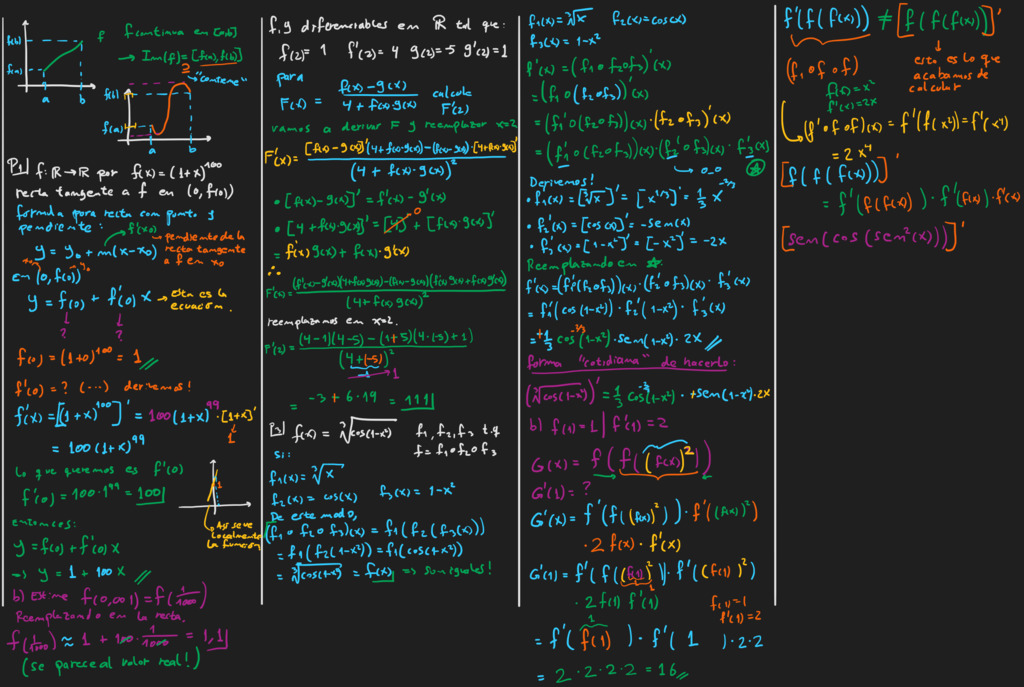 f(b)
f(a)
a
b
f
f continua en [a,b]
⇒ Im(f)=[f(a),f(b)]
⊇ "contiene"
f(b)
f(a)
a
b
P1] f: ℝ→ℝ por f(x)=(1+x)^100
recta tangente a f en (0,f(0))
formula para recta con punto y
pendiente:
f'(x0)
y = y0 + m(x-x0)
pendiente de la
recta tangente
a f en x0
x0 y0
en (0,f(0))
y = f(0) + f'(0) x → Esta es la
ecuación.
? ?
f(0) = (1+0)^100 = 1 //
f'(0) = ? (...) derivemos!
f'(x) = [(1+x)^100]' = 100(1+x)^99 · [1+x]'
1
= 100(1+x)^99
Lo que queremos es f'(0)
f'(0) = 100·1^99 = 100
1
Así se ve
localmente
la función
entonces:
y = f(0)+f'(0) x
⇒ y = 1 + 100x //
b) Estime f(0,001) = f(1/1000)
Reemplazando en la recta.
f(1/1000) ≈ 1 + 100 · 1/1000 = 1,1
(se parece al valor real!)
f,g diferenciables en ℝ tal que:
f(2)= 1 f'(2)= 4 g(2)=-5 g'(2)=1
para
F(x) = (f(x)-g(x))/(4+f(x)·g(x)) calcule F'(2)
vamos a derivar F y reemplazar x=2
F'(x) = ([f(x)-g(x)]'(4+f(x)·g(x))-(f(x)-g(x))·[4+f(x)·g(x)]')/(4+f(x)·g(x))^2
• [f(x)-g(x)]' = f'(x) - g'(x)
• [4+f(x)·g(x)]' = [4]' + [f(x)·g(x)]'
0
= f'(x)g(x) + f(x)·g'(x)
∴
F'(x) = ((f'(x)-g'(x))(4+f(x)g(x))-(f(x)-g(x))(f'(x)g(x)+f(x)g'(x)))/(4+f(x)g(x))^2
reemplazamos en x=2.
F'(2) = ((4-1)(4-5)-(1+5)(4·(-5)+1))/(4+(-5))^2
-1 → 1
= -3 + 6·19 = 111
P3] f(x) = ∛cos(1-x²) f1, f2, f3 t.q
f = f1∘f2∘f3
si:
f1(x) = ∛x
f2(x) = cos(x) f3(x) = 1-x²
De este modo,
(f1∘f2∘f3)(x) = f1(f2(f3(x)))
= f1(f2(1-x²)) = f1(cos(1-x²))
= ∛cos(1-x²) = f(x) ⇒ son iguales!
f1(x)=∛x f2(x)=cos(x)
f3(x) = 1-x²
f'(x) = (f1∘f2∘f3)'(x)
= (f1∘(f2∘f3))'(x)
= (f1'∘(f2∘f3))(x)·(f2∘f3)'(x)
= (f1'∘(f2∘f3))(x)·(f2'∘f3)(x)·f3'(x)
Derivemos!
• f1'(x) = [∛x]' = [x^(1/3)]' = 1/3 x^(-2/3)
• f2'(x) = [cos(x)]' = -sen(x)
• f3'(x) = [1-x²]' = [-x²]' = -2x
Reemplazando en ☆
f'(x) = (f1'(f2∘f3))(x)·(f2'∘f3)(x)·f3'(x)
= f1'(cos(1-x²))·f2'(1-x²)·f3'(x)
= +1/3 cos^(-2/3)(1-x²)·sen(1-x²)·2x //
forma "cotidiana" de hacerlo:
(∛cos(1-x²))' = 1/3 cos^(-2/3)(1-x²)·+sen(1-x²)·2x
b) f(1)=1 | f'(1)=2
G(x) = f(f((f(x))²))
G'(1) = ?
G'(x) = f'(f((f(x))²))·f'((f(x))²)
·2f(x)·f'(x)
G'(1) = f'(f((f(1))²))·f'((f(1))²)
1
·2f(1) f'(1)
f(1)=1
f'(1)=2
1
= f'(f(1))·f'(1)·2·2
= 2·2·2·2 = 16 //
f'(f(f(x))) ≠ [f(f(f(x)))]'
(f'∘f∘f)
esto es lo que
acabamos de
calcular
f(x)=x²
f'(x)=2x
(f'∘f∘f)(x) = f'(f(x²)) = f'(x⁴)
= 2x⁴
[f(f(f(x)))]'
= f'(f(f(x)))·f'(f(x))·f'(x)
[sen(cos(sen²(x)))]'